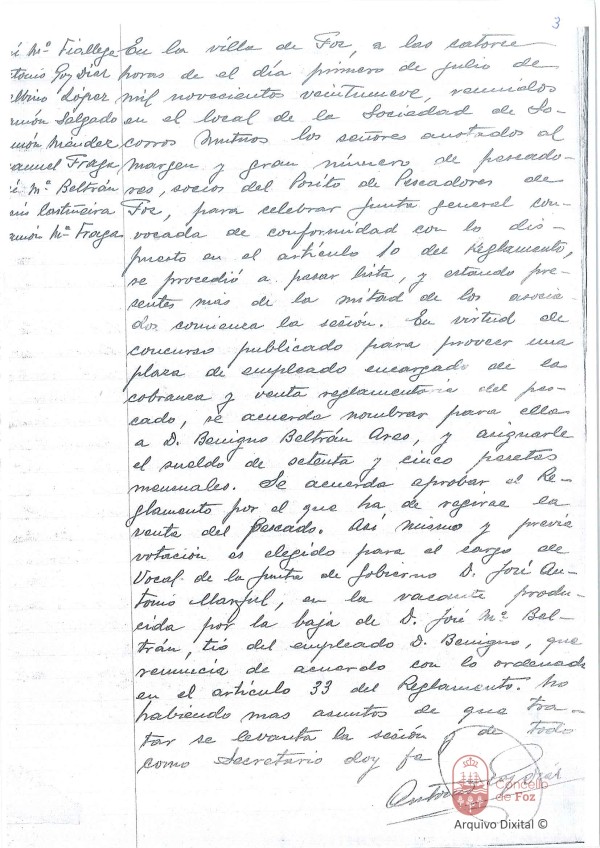 3
é Mª Fiallega
ntonio Goy Díaz
lbino López
amón Salgado
món Méndez
anuel Fraga
é Mª Beltrán
uis Costiñeira
amón Mª Fraga
En la villa de Foz, a las catorce
horas de el día primero de julio de
mil novecientos veintinueve, reunidos
en el local de la Sociedad de So-
corros Mutuos los señores anotados al
margen y gran número de pescado-
res, socios del Pósito de Pescadores de
Foz, para celebrar junta general con-
vocada de conformidad con lo dis-
puesto en el artículo 10 del Reglamento,
se procedió a pasar lista, y estando pre-
sentes más de la mitad de los asocia-
dos comienza la seción. En virtud de
concurso publicado para proveer una
plaza de empleado encargado de la
cobranza y venta reglamentaria del pes-
cado, se acuerda nombrar para ellas
a D. Benigno Beltrán Ares, y asignarle
el sueldo de setenta y cinco pesetas
mensuales. Se acuerda aprobar el Re-
glamento por el que ha de regirse la
venta del Pescado. Así mismo y previa
votación es elegido para el cargo de
Vocal de la junta de Gobierno D. José An-
tonio Maxful, en la vacante produ-
cida por la baja de D. José Mª Bel-
trán, tío del empleado D. Benigno, que
renuncia de acuerdo con lo ordenado
en el artículo 33 del Reglamento. No
habiendo mas asuntos de que tra-
tar se levanta la seción y de todo
como Secretario doy fe
Antonio Goy Díaz
Concello
de Foz
Arquivo Dixital ©